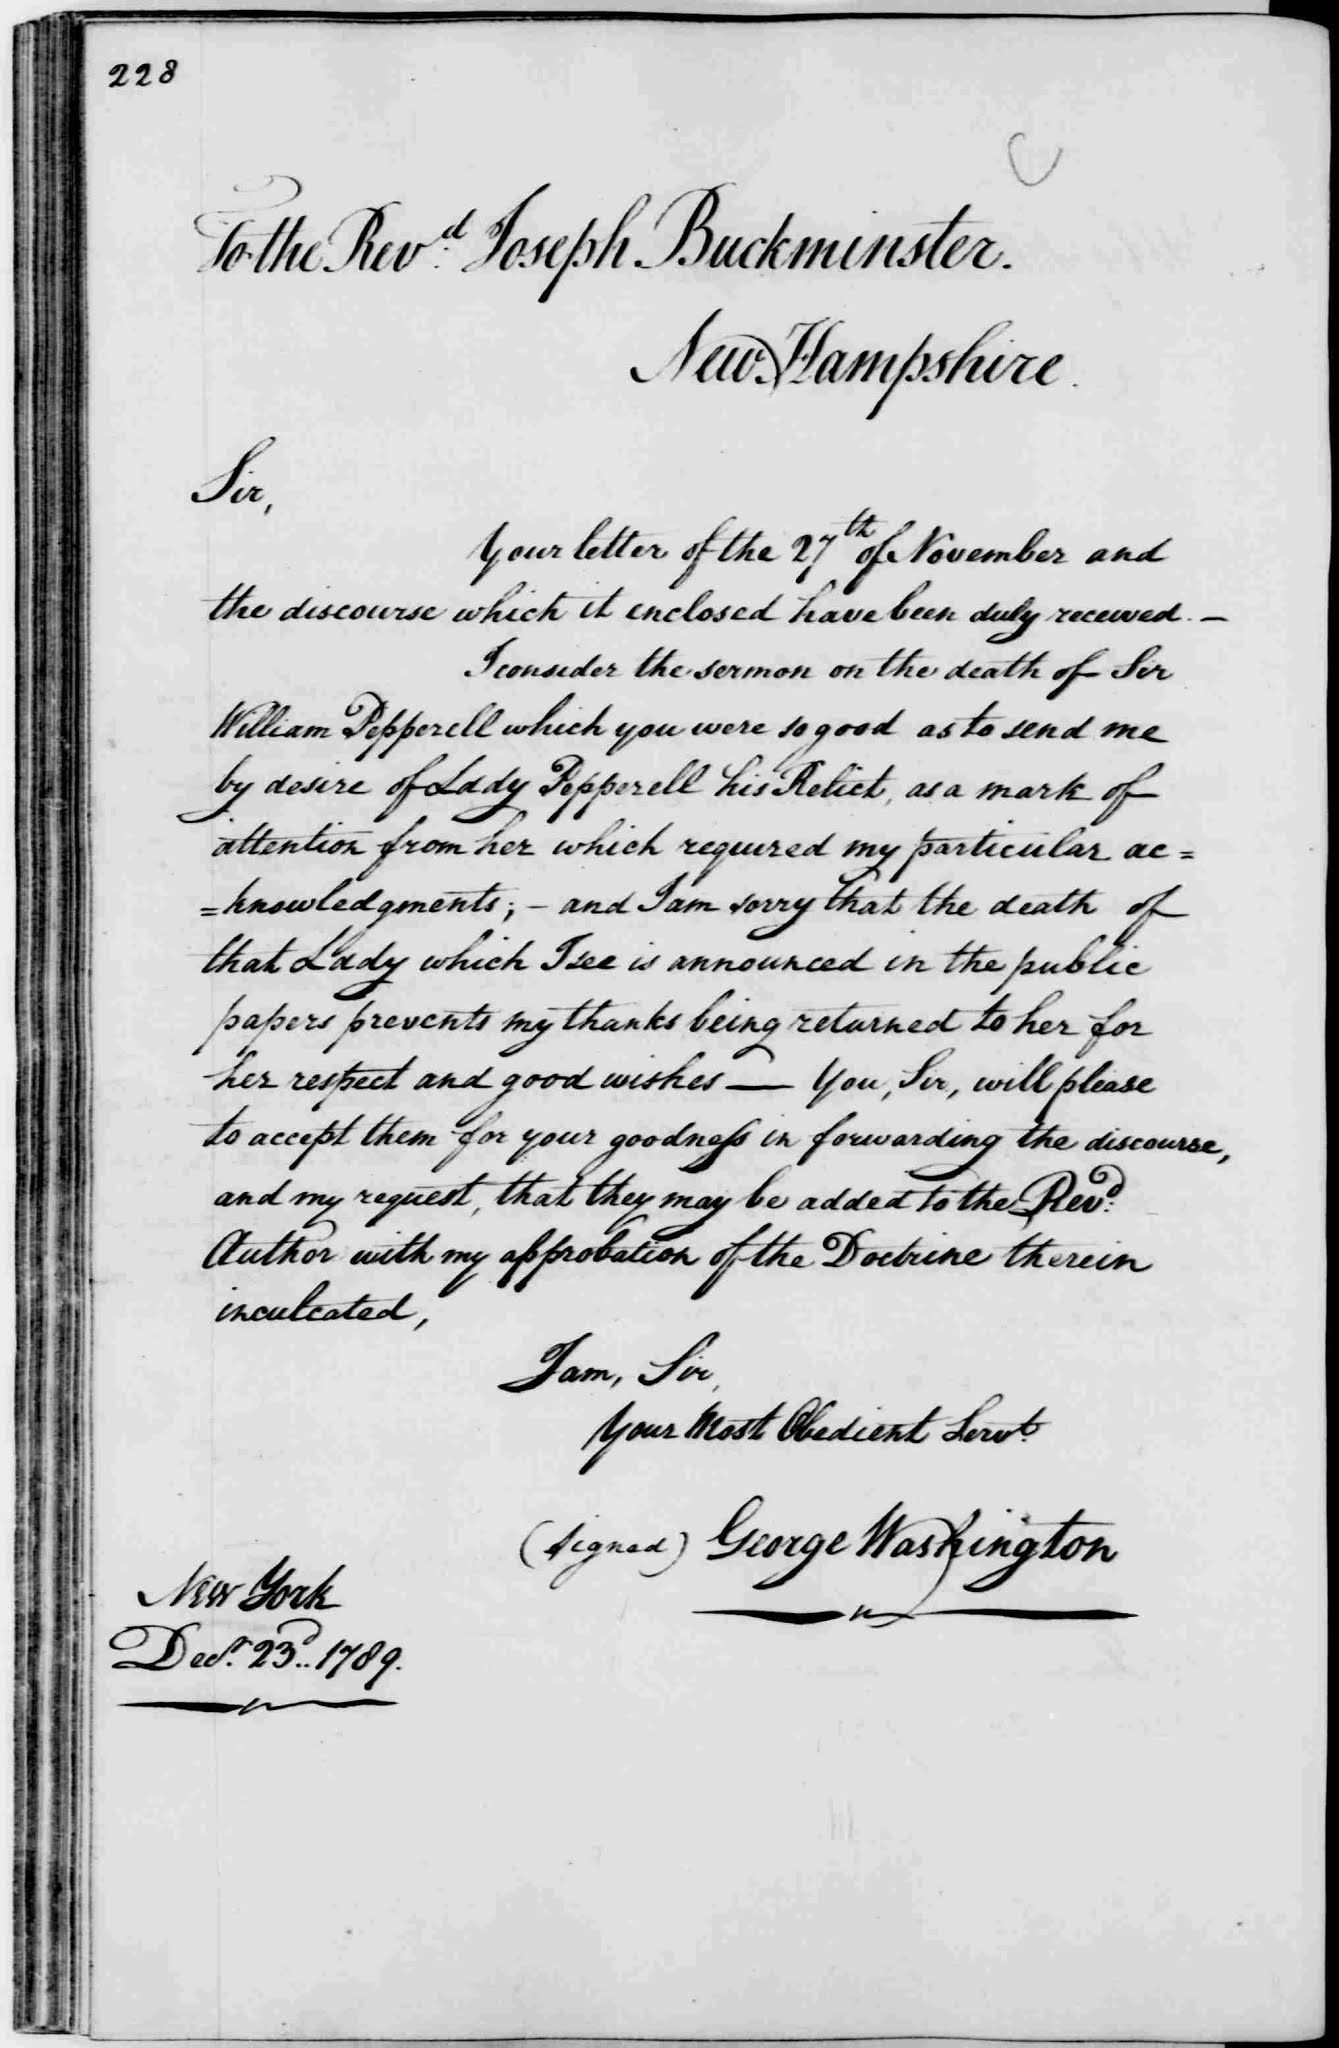 228
To the Revd. Joseph Buckminster.
New Hampshire.
Sir,
Your letter of the 27th of November and
the discourse which it enclosed have been duly received. —
I consider the sermon on the death of Sir
William Pepperell which you were so good as to send me
by desire of Lady Pepperell his Relict, as a mark of
attention from her which required my particular ac=
=knowledgments; – and I am sorry that the death of
that Lady which I see is announced in the public
papers prevents my thanks being returned to her for
her respect and good wishes — You, Sir, will please
to accept them for your goodness in forwarding the discourse,
and my request, that they may be added to the Revd.
Author with my approbation of the Doctrine therein
inculcated,
I am, Sir,
Your Most Obedient Servt.
(signed) George Washington
New York
Decr. 23d. 1789.